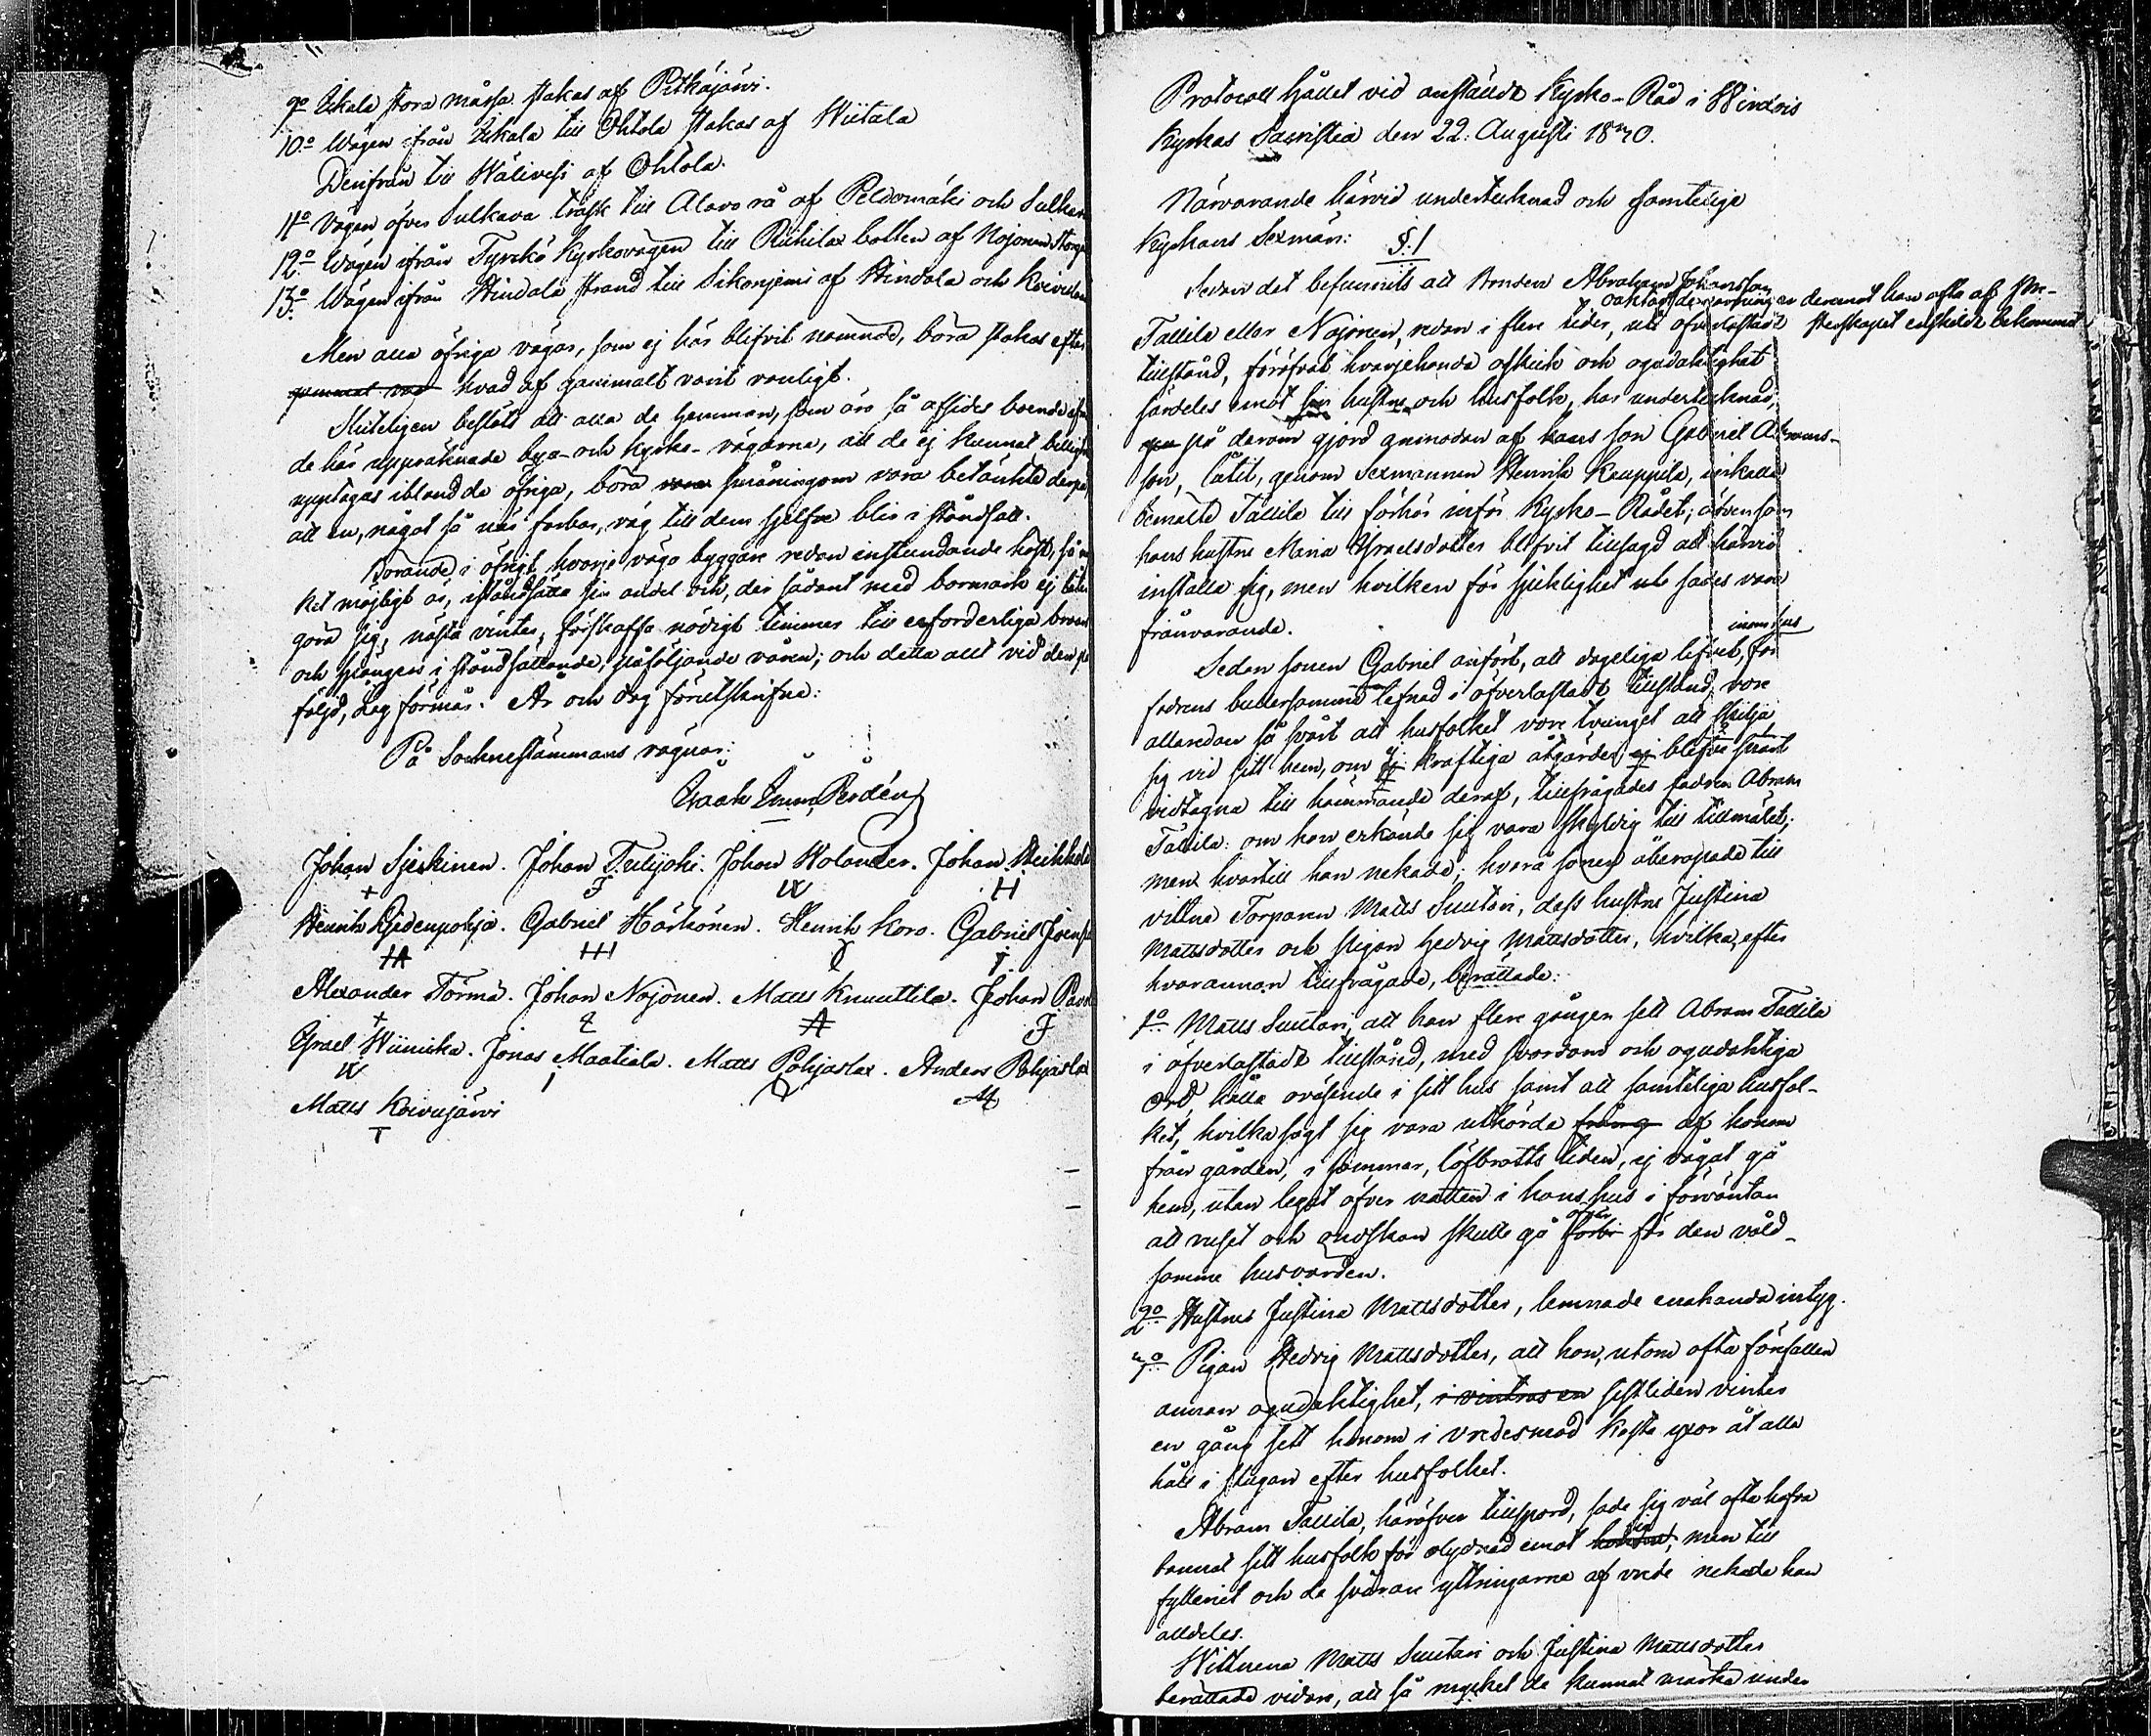 9o Ukala stora måssa stakas af Pitkäjärvi.
10o Wägen ifrån Ukala till Ohtola stakas af Wiitala
Derifrån till Wälivesi af Ohtola.
11o Vägen öfver Sulkava träsk till Alavo rå af Peldomäki och Sulkav
12o Wägen ifrån Tyrckö Kyrkovägen till Riihilax botten af Nojonen
13o Wägen ifrån Hindala strand till Sikonjemi af Hindala och
Men alla öfriga vägar, som ej här blifvit nämnde, böra stakas efter
gammal hvad af gammalt varit vanligt.
Sluteligen beslöts att alla de hemman, som äro så afsides boende
de här uppräknade bya- och kyrko-vägarna, att de ej kunnat
upptagas iblandde öfriga, böra vara småningom vara betänkte derpå
att en, något så när farbar, väg till dem sjelfva blir i ståndsatt.
Börande i öfrigt hvarje väga byggare redan instundande höst, så
ket möjligt är, iståndsätta sin andel och, der sådant med barmark ej
göra sig, nästa vinter, förskaffa nödigt timmer till erforderliga
och spångers i ståndsättande, påföljande våren; och detta allt vid den
följd, lag förmår. År och dag förutskrifne:
På Sochnestämmans vägnar:
Isaak Perdén
Johan Sjeskinen. Johan Tulijoki. Johan Holander. Johan
+ F W H
Henrik Gabriel Härkönen. Henrik Koro. Gabriel
HA HH T
Alexander Törmä. Johan Nojonen. Matts Knuuttila. Johan
+ A F
Israel Wiinikka. Jonas Maatiala. Matts Pohjaslax. Anders Pohjaslax
W I M
Matts Koivujärvi
T
Protocoll hållet vid anstäldt Kyrko-Råd i Wirdois
Kyrkas Sacristia den 22: Augusti 1840.
Närvarande härvid undertecknad och samtelige
Kyrkans Sexmän:
§. 1
Sedan det befunnits att Bonden Abraham Johansson
oaktadt de varningar deremot han ofta af Pre-
Tallila eller Nojonen, redan i flere tider, uti öfverlastadt sterskapet enskildt bekommit
tillstånd, föröfvat hvarjehanda oskick och ogudaktighet
särdeles emot sin hustru och husfolk, har undertecknad,
på derom gjord anmodan af hans son Gabriel Abrams-
son, låtit, genom Sexmannen Henrik Kauppila, inkalla
bemälte Tallila till förhör inför Kyrko-Rådet; äfvensom
hans hustru Maria Israelsdotter blifvit tillsagd att härvid
inställa sig, men hvilken för sjuklighet ut sades vara
frånvarande.
inom hus
Sedan sonen Gabriel anfört, att dageliga lifvet, för
fadrens bullersamma lefnad i öfverlastadt tillstånd, vore
allaredan så svårt att husfolket vore tvunget att skilja
sig vid sitt hem, om ej kraftiga åtgärder ej blefve snart
vidtagna till hämmande deraf, tillfrågades fadren Abram
Tallila: om han erkände sig vara skyldig till tillmälet;
men hvartill han nekade; hvarå sonen åberopade till
vittne Torparen Matts Suutari, dess hustru Justina
Mattsdotter och pigan Hedvig Mattsdotter, hvilka, efter
hvarannan tillfrågade, berättade:
1o Matts Suutari, att han flere gånger sett Abram Tallila
i öfverlastadt tillstånd, med svordom och ogudaktiga
ord, hålla oväsende i sitt hus samt att samteliga husfol-
ket, hvilka sagt sig vara utkörda från g af honom
från gården, i sommar, löfbrotts tiden, ej vågat gå
hem, utan legat öfver natten i hans hus i förväntan
öfver
att ruset och ondskan skulle gå förbi för den våld-
samme husvärden.
2o Hustrun Justina Mattsdotter, lemnade enahanda intyg.
3o Pigan Hedvig Mattsdotter, att hon, utom ofta förefallen
annan ogudaktighet, i vintras en sistliden vinter
en gång sett honom i vredesmod kasta yxor åt alla
håll i stugan efter husfolket.
Abram Tallila, häröfver tillspord, sade sig väl ofta hafva
sig
bannat sitt husfolk för olydnad emot honom, men till
fylleriet och de svårare yttringarna af vrede nekade han
alldeles.
Wittnena Matts Suutari och Justina Mattsdotter
berättade vidare, att så mycket de kunnat märka under